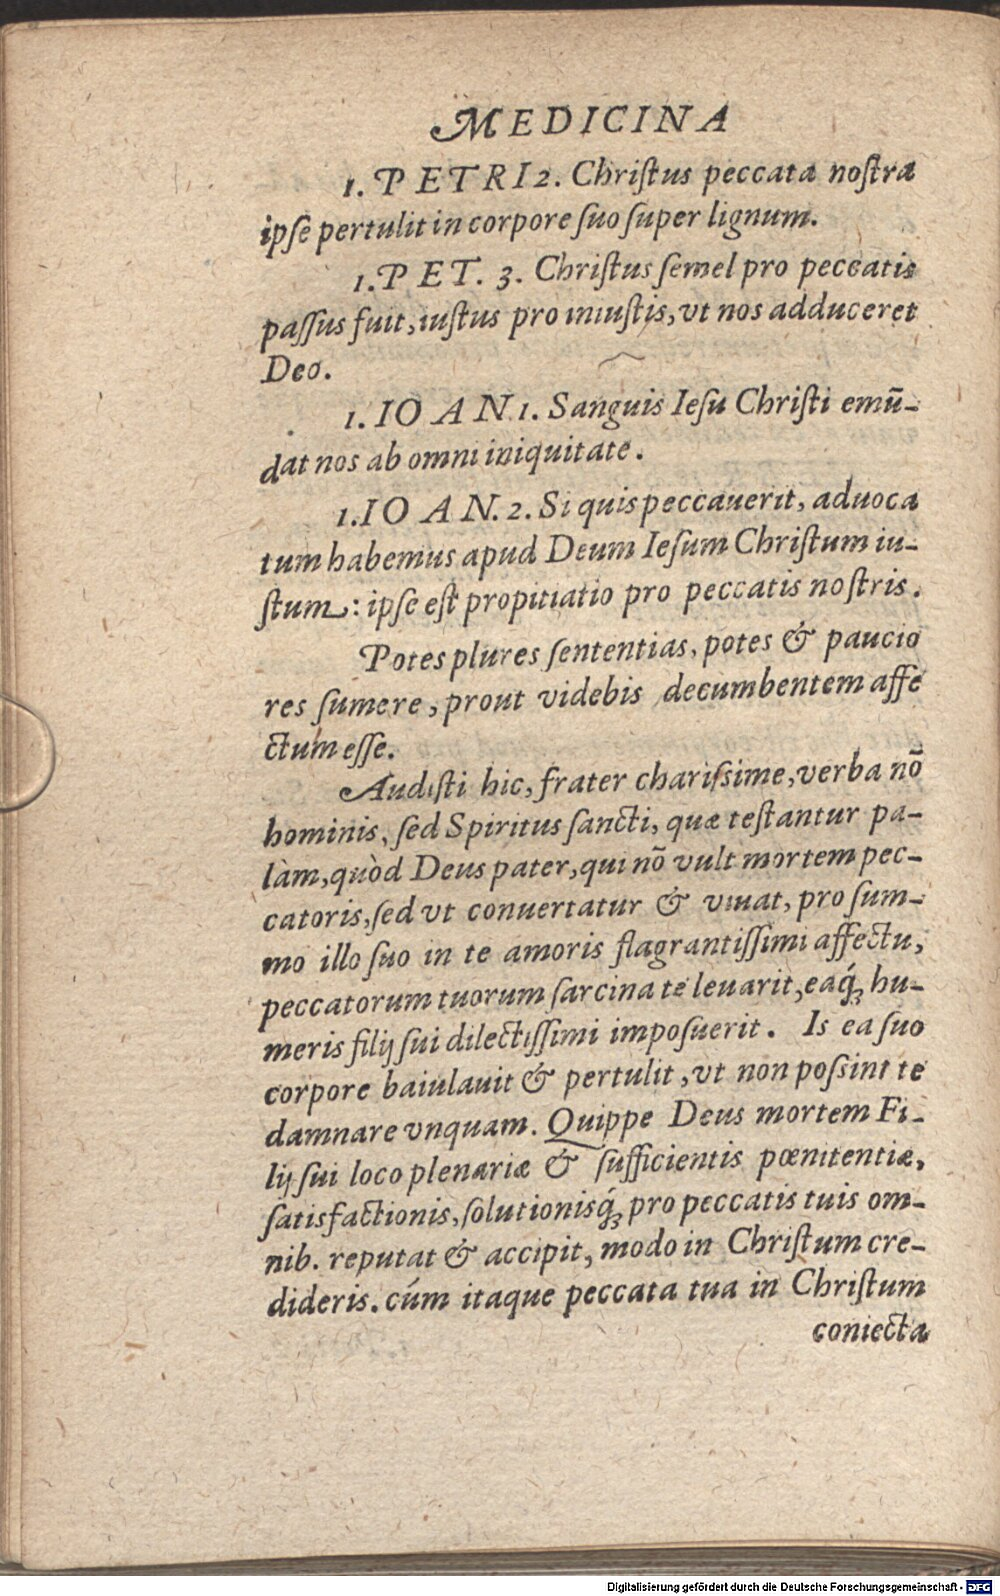 MEDICINA
1. PETRI 2. Chriſtus peccata noſtra
ipſe pertulit in corpore ſuo ſuper lignum.
1. PET. 3. Chriſtus ſemel pro peccatis
paſſus fuit, iuſtus pro iniuſtis, vt nos adduceret
Deo.
1. IOAN 1. Sanguis Ieſu Chriſti emũ-
dat nos ab omni iniquitate.
1. IOAN. 2. Si quis peccauerit, aduoca
tum habemus apud Deum Ieſum Chriſtum iu-
ſtum: ipſe eſt propitiatio pro peccatis noſtris.
Potes plures ſententias, potes & paucio
res ſumere, prout videbis decumbentem affe
ctum eſſe.
Audiſti hic, frater chariſsime, verba nõ
hominis, ſed Spiritus ſancti, quæ teſtantur pa-
làm, quòd Deus pater, qui nõ vult mortem pec-
catoris, ſed vt conuertatur & viuat, pro ſum-
mo illo ſuo in te amoris flagrantiſſimi affectu,
peccatorum tuorum ſarcina te leuarit, eaq́; hu-
meris filij ſui dilectiſſimi impoſuerit. Is ea ſuo
corpore baiulauit & pertulit, vt non poſsint te
damnare vnquam. Quippe Deus mortem Fi-
lij ſui loco plenariæ & ſufficientis pœnitentiæ,
ſatisfactionis, ſolutionisq́; pro peccatis tuis om-
nib. reputat & accipit, modo in Chriſtum cre-
dideris. cúm itaque peccata tua in Chriſtum
coniecta
Digitalisierung gefördert durch die Deutsche Forschungsgemeinschaft - DFG